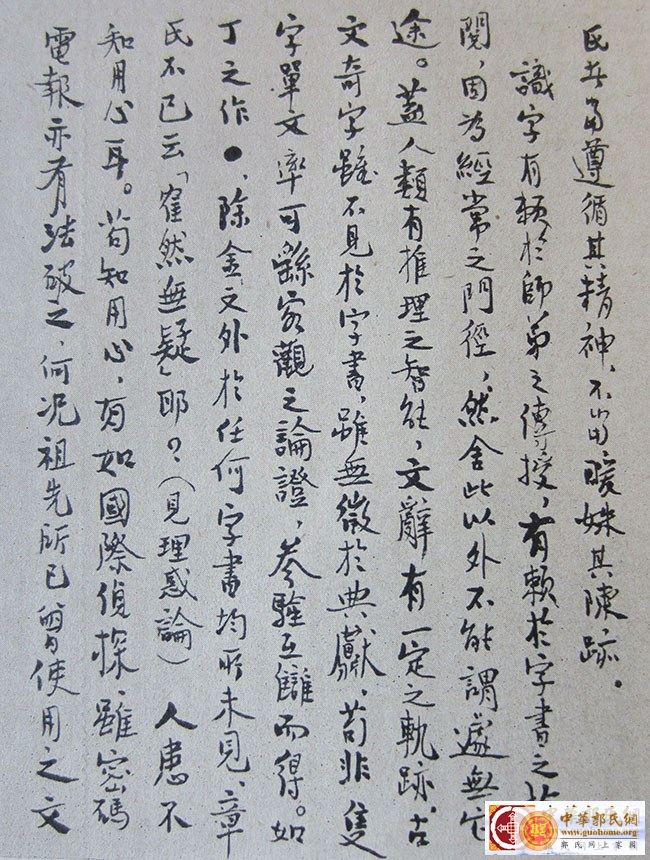 氏者當遵循其精神,不當暖姝其陳跡。
識字有賴於師弟之傳授,有賴於字書之
閱,固為經常之門徑,然舍此以外不能謂遂無它
途。蓋人類有推理之智能,文辭有一定之軌跡,古
文奇字雖不見於字書,雖無徵於典獻,苟非隻
字單文率可繇客觀之論證,參驗互讎而得。如
丁之作●,除金文外於任何字書均所未見,章
氏不已云「隺然無疑」耶?(見理惑論)人患不
知用心耳。苟知用心,有如國際偵探,雖密碼
電報亦有法破之,何況祖先所已曾使用之文
中華郭氏網
www.guohome.org
郭氏網上家園